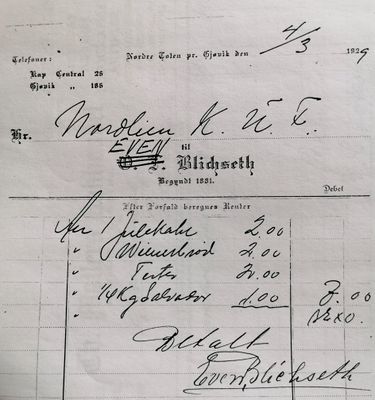 Nordre Toten pr. Gjøvik den 4/3 1929
Telefoner:
Kap Central 28
Gjøvik „ 188
Hr. Nordlien K. U. F.
til
EVEN
Blichseth
Begyndt 1881.
Debet
Efter Forfald beregnes Renter
An 1 Julekake 2.00
" Wienerbrød 2.00
" Terter 2.00
" 1/4 Kg Salvador 1.00
Betalt
Even Blichseth